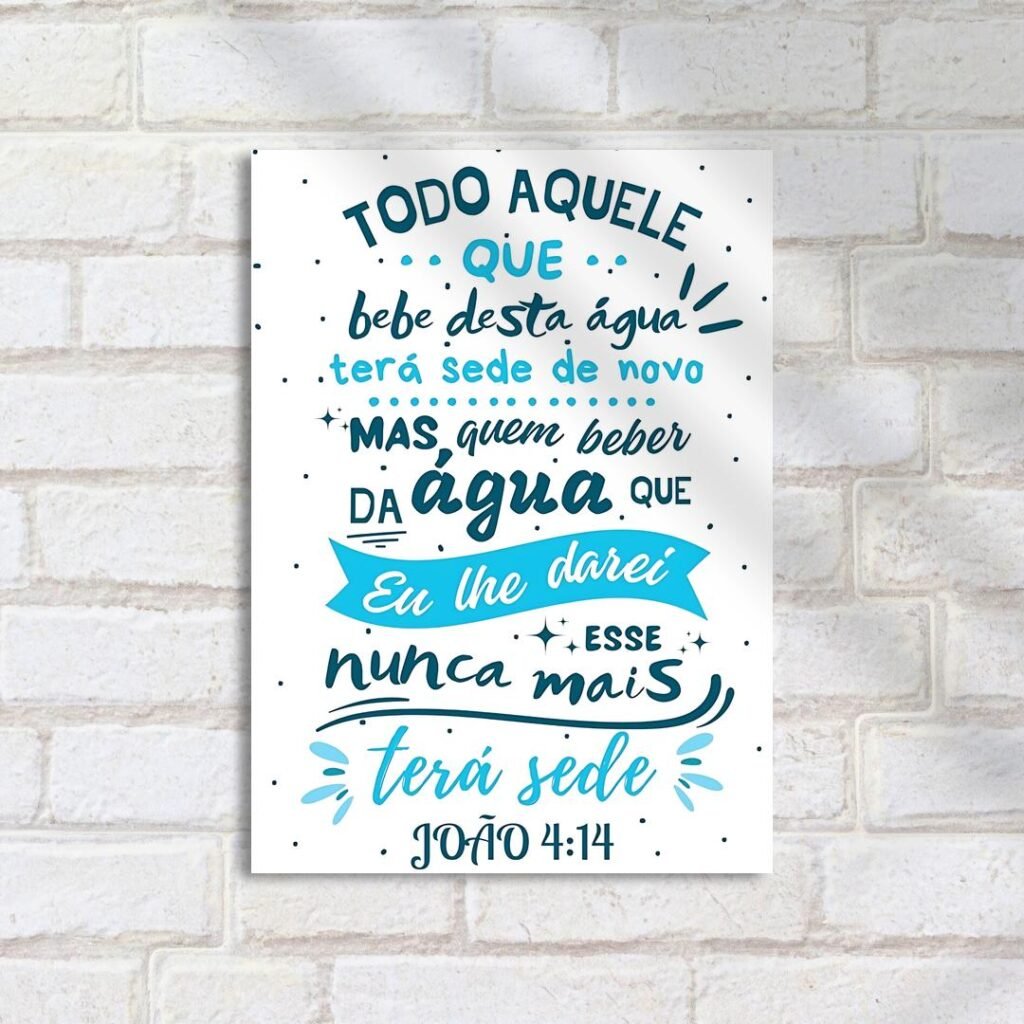 TODO AQUELE
QUE
bebe desta água
terá sede de novo
MAS quem beber
DA água QUE
Eu lhe darei
ESSE
nunca mais
terá sede
JOÃO 4:14